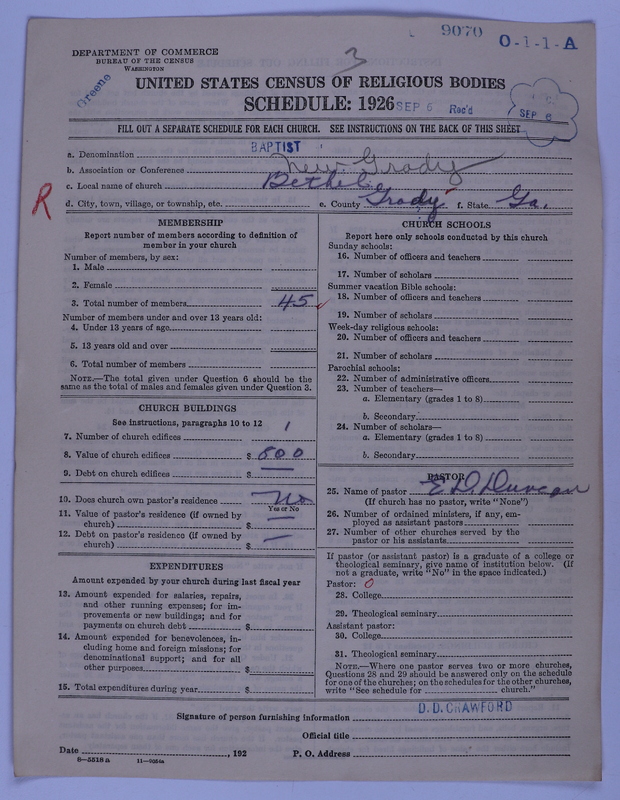 9070
O-1-1-A
DEPARTMENT OF COMMERCE
BUREAU OF THE CENSUS
WASHINGTON
3
Greene
UNITED STATES CENSUS OF RELIGIOUS BODIES
SCHEDULE: 1926
SEP 6 Rec'd
SEP 6
FILL OUT A SEPARATE SCHEDULE FOR EACH CHURCH. SEE INSTRUCTIONS ON THE BACK OF THIS SHEET
a. Denomination BAPTIST
b. Association or Conference New Grady
c. Local name of church Bethel
R
d. City, town, village, or township, etc. e. County Grady f. State Ga.
MEMBERSHIP
Report number of members according to definition of member in your church
Number of members, by sex:
1. Male
2. Female
3. Total number of members 45
Number of members under and over 13 years old:
4. Under 13 years of age
5. 13 years old and over
6. Total number of members
NOTE.—The total given under Question 6 should be the same as the total of males and females given under Question 3.
CHURCH BUILDINGS
See instructions, paragraphs 10 to 12
7. Number of church edifices 1
8. Value of church edifices $ 800
9. Debt on church edifices $ —
10. Does church own pastor's residence No
Yes or No
11. Value of pastor's residence (if owned by church) $ —
12. Debt on pastor's residence (if owned by church) $ —
EXPENDITURES
Amount expended by your church during last fiscal year
13. Amount expended for salaries, repairs, and other running expenses; for improvements or new buildings; and for payments on church debt $
14. Amount expended for benevolences, including home and foreign missions; for denominational support; and for all other purposes $
15. Total expenditures during year $
CHURCH SCHOOLS
Report here only schools conducted by this church
Sunday schools:
16. Number of officers and teachers
17. Number of scholars
Summer vacation Bible schools:
18. Number of officers and teachers
19. Number of scholars
Week-day religious schools:
20. Number of officers and teachers
21. Number of scholars
Parochial schools:
22. Number of administrative officers
23. Number of teachers—
a. Elementary (grades 1 to 8)
b. Secondary
24. Number of scholars—
a. Elementary (grades 1 to 8)
b. Secondary
PASTOR
25. Name of pastor E D Duncan
(If church has no pastor, write "None")
26. Number of ordained ministers, if any, employed as assistant pastors
27. Number of other churches served by the pastor or his assistants
If pastor (or assistant pastor) is a graduate of a college or theological seminary, give name of institution below. (If not a graduate, write "No" in the space indicated.)
Pastor: 0
28. College
29. Theological seminary
Assistant pastor:
30. College
31. Theological seminary
NOTE.—Where one pastor serves two or more churches, Questions 28 and 29 should be answered only on the schedule for one of the churches; on the schedules for the other churches, write "See schedule for church."
Signature of person furnishing information D. D. CRAWFORD
Official title
Date , 192 P. O. Address
8—5518 a 11—9054a